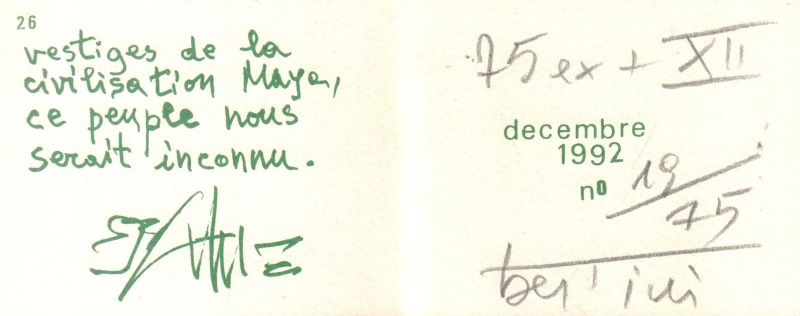 26
vestiges de la
civilisation Maya,
ce peuple nous
serait inconnu.
75 ex + XII
decembre
1992
nº 19/75